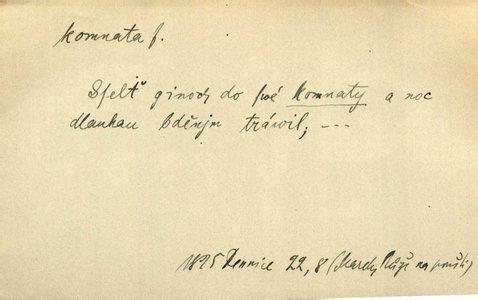 komnata f.
Sfelť ginoch do swé komnaty a noc
dlauhau bděnjm tráwil; ---
1825 Dennice 22, 8 (Marek, Růže na poušti)